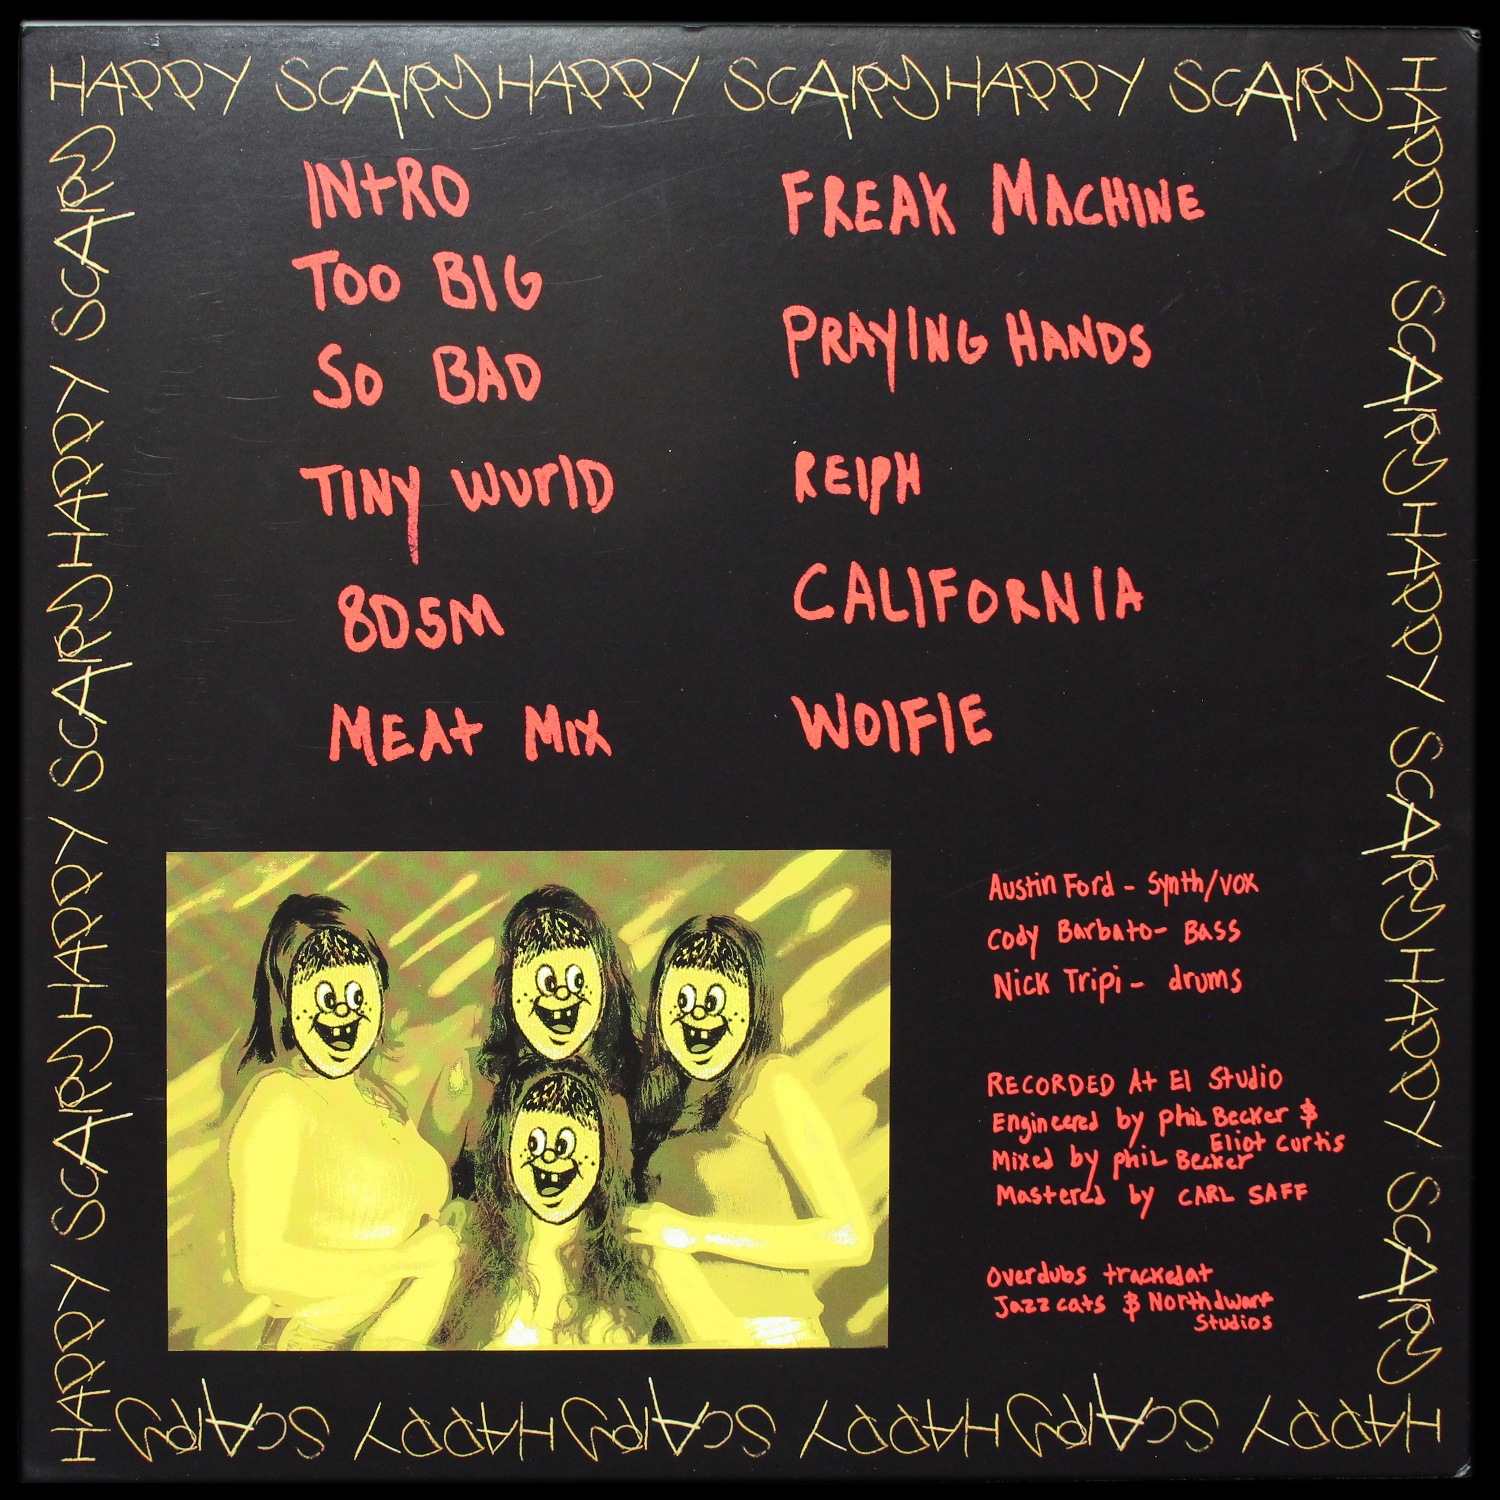 HAPPY SCARY HAPPY SCARY HAPPY SCARY
HAPPY SCARY HAPPY SCARY HAPPY SCARY
HAPPY SCARY HAPPY SCARY HAPPY SCARY
HAPPY SCARY HAPPY SCARY HAPPY SCARY
INtRO
TOO BIG
SO BAD
TINY WUrlD
8D5M
MEAt MIX
FREAK MACHINE
PRAYING HANDS
REIPH
CALIFORNIA
WOlFIE
Austin Ford - Synth/vox
Cody Barbato- Bass
Nick Tripi - drums
RECORDED At El Studio
Engineered by phil Becker &
Eliot Curtis
Mixed by phil Becker
Mastered by CARL SAFF
Overdubs tracked at
Jazz cats & Northdwarf
Studios